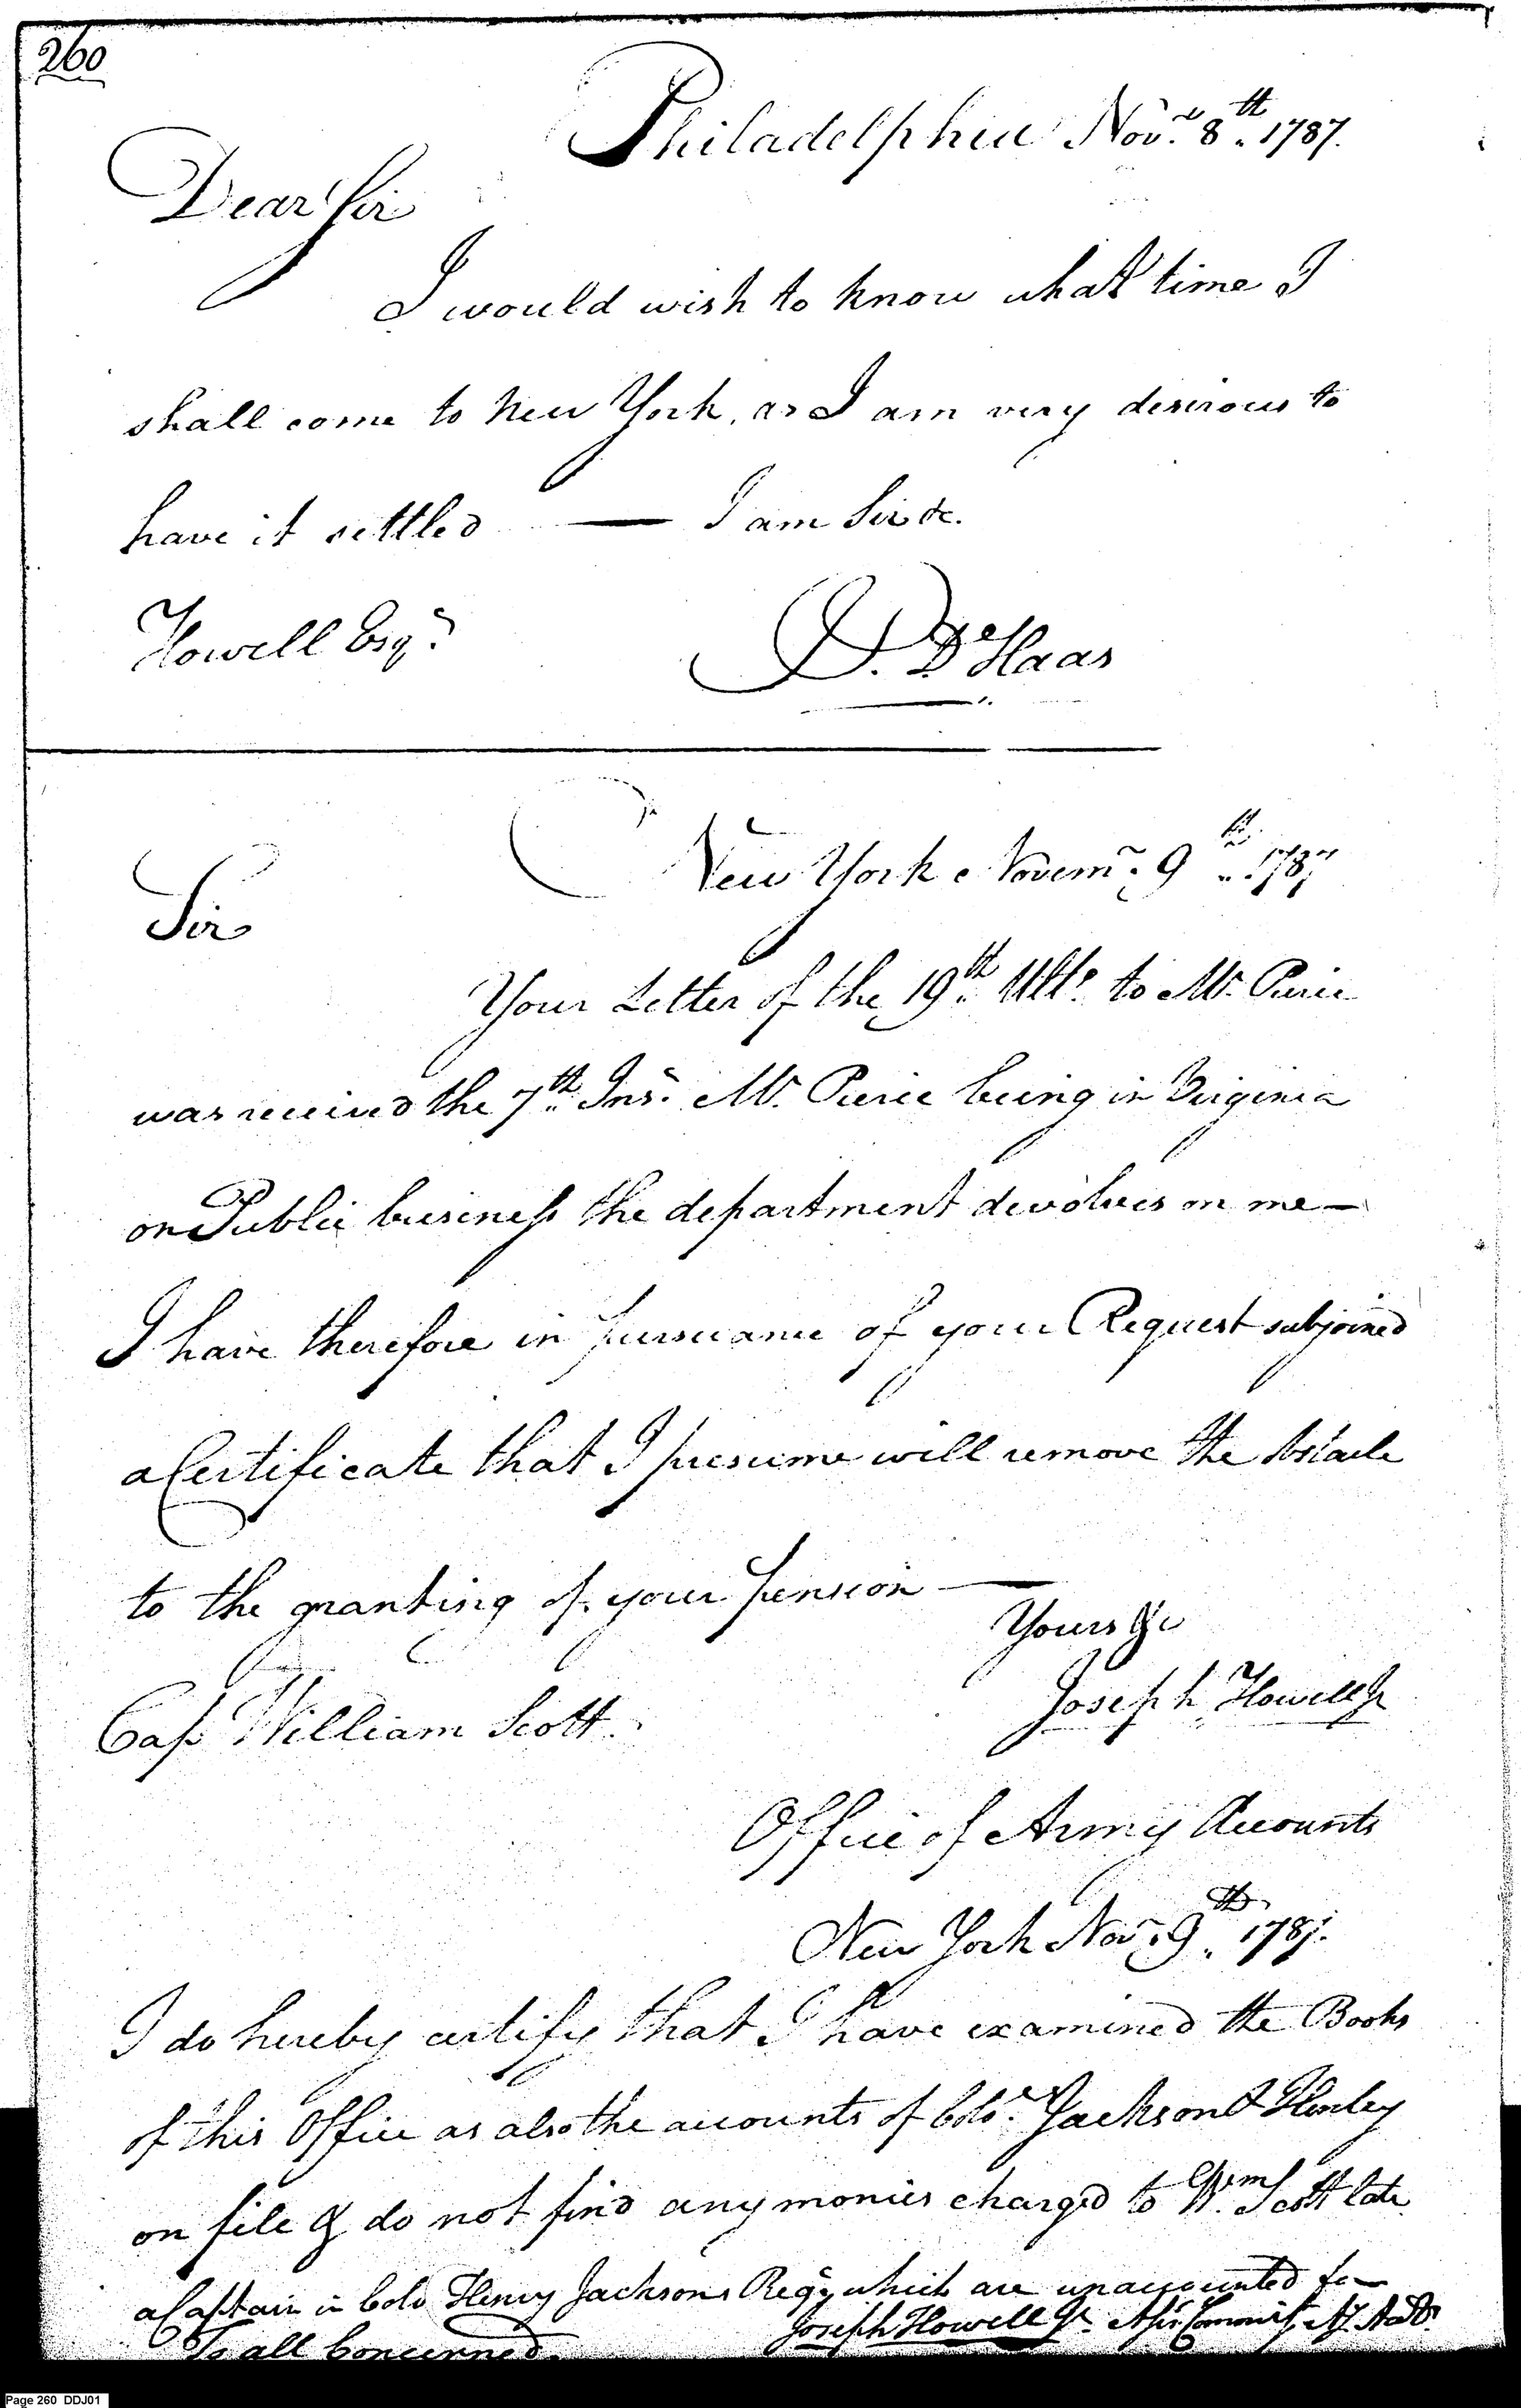 260
Philadelphia Novr. 8th. 1787.
Dear Sir
I would wish to know what time I
shall come to New York, as I am very desirous to
have it settled — I am Sir &c.
Howell Esqr.
J. D'Haas
New York Novemr. 9th. 1787
Sir
Your Letter of the 19th. Ulto. to Mr. Pierce
was received the 7th. Inst. Mr. Pierce being in Virginia
on Public business the department devolves on me —
I have therefore in pursuance of your Request subjoined
a Certificate that I presume will remove the Obstacle
to the granting of your pension —
Yours &c
Joseph Howell Jr
Cap William Scott.
Office of Army Accounts
New York Novr. 9th. 1787.
I do hereby certify that I have examined the Books
of this Office as also the accounts of Colo. Jackson & Henley
on file & do not find any monies charged to Wm. Scott late
a Captain in Colo Henry Jacksons Regt. which are unaccounted for
Joseph Howell Jr. Assis Commis. Ay. Accts.
To all Concerned.
Page 260 DDJ01